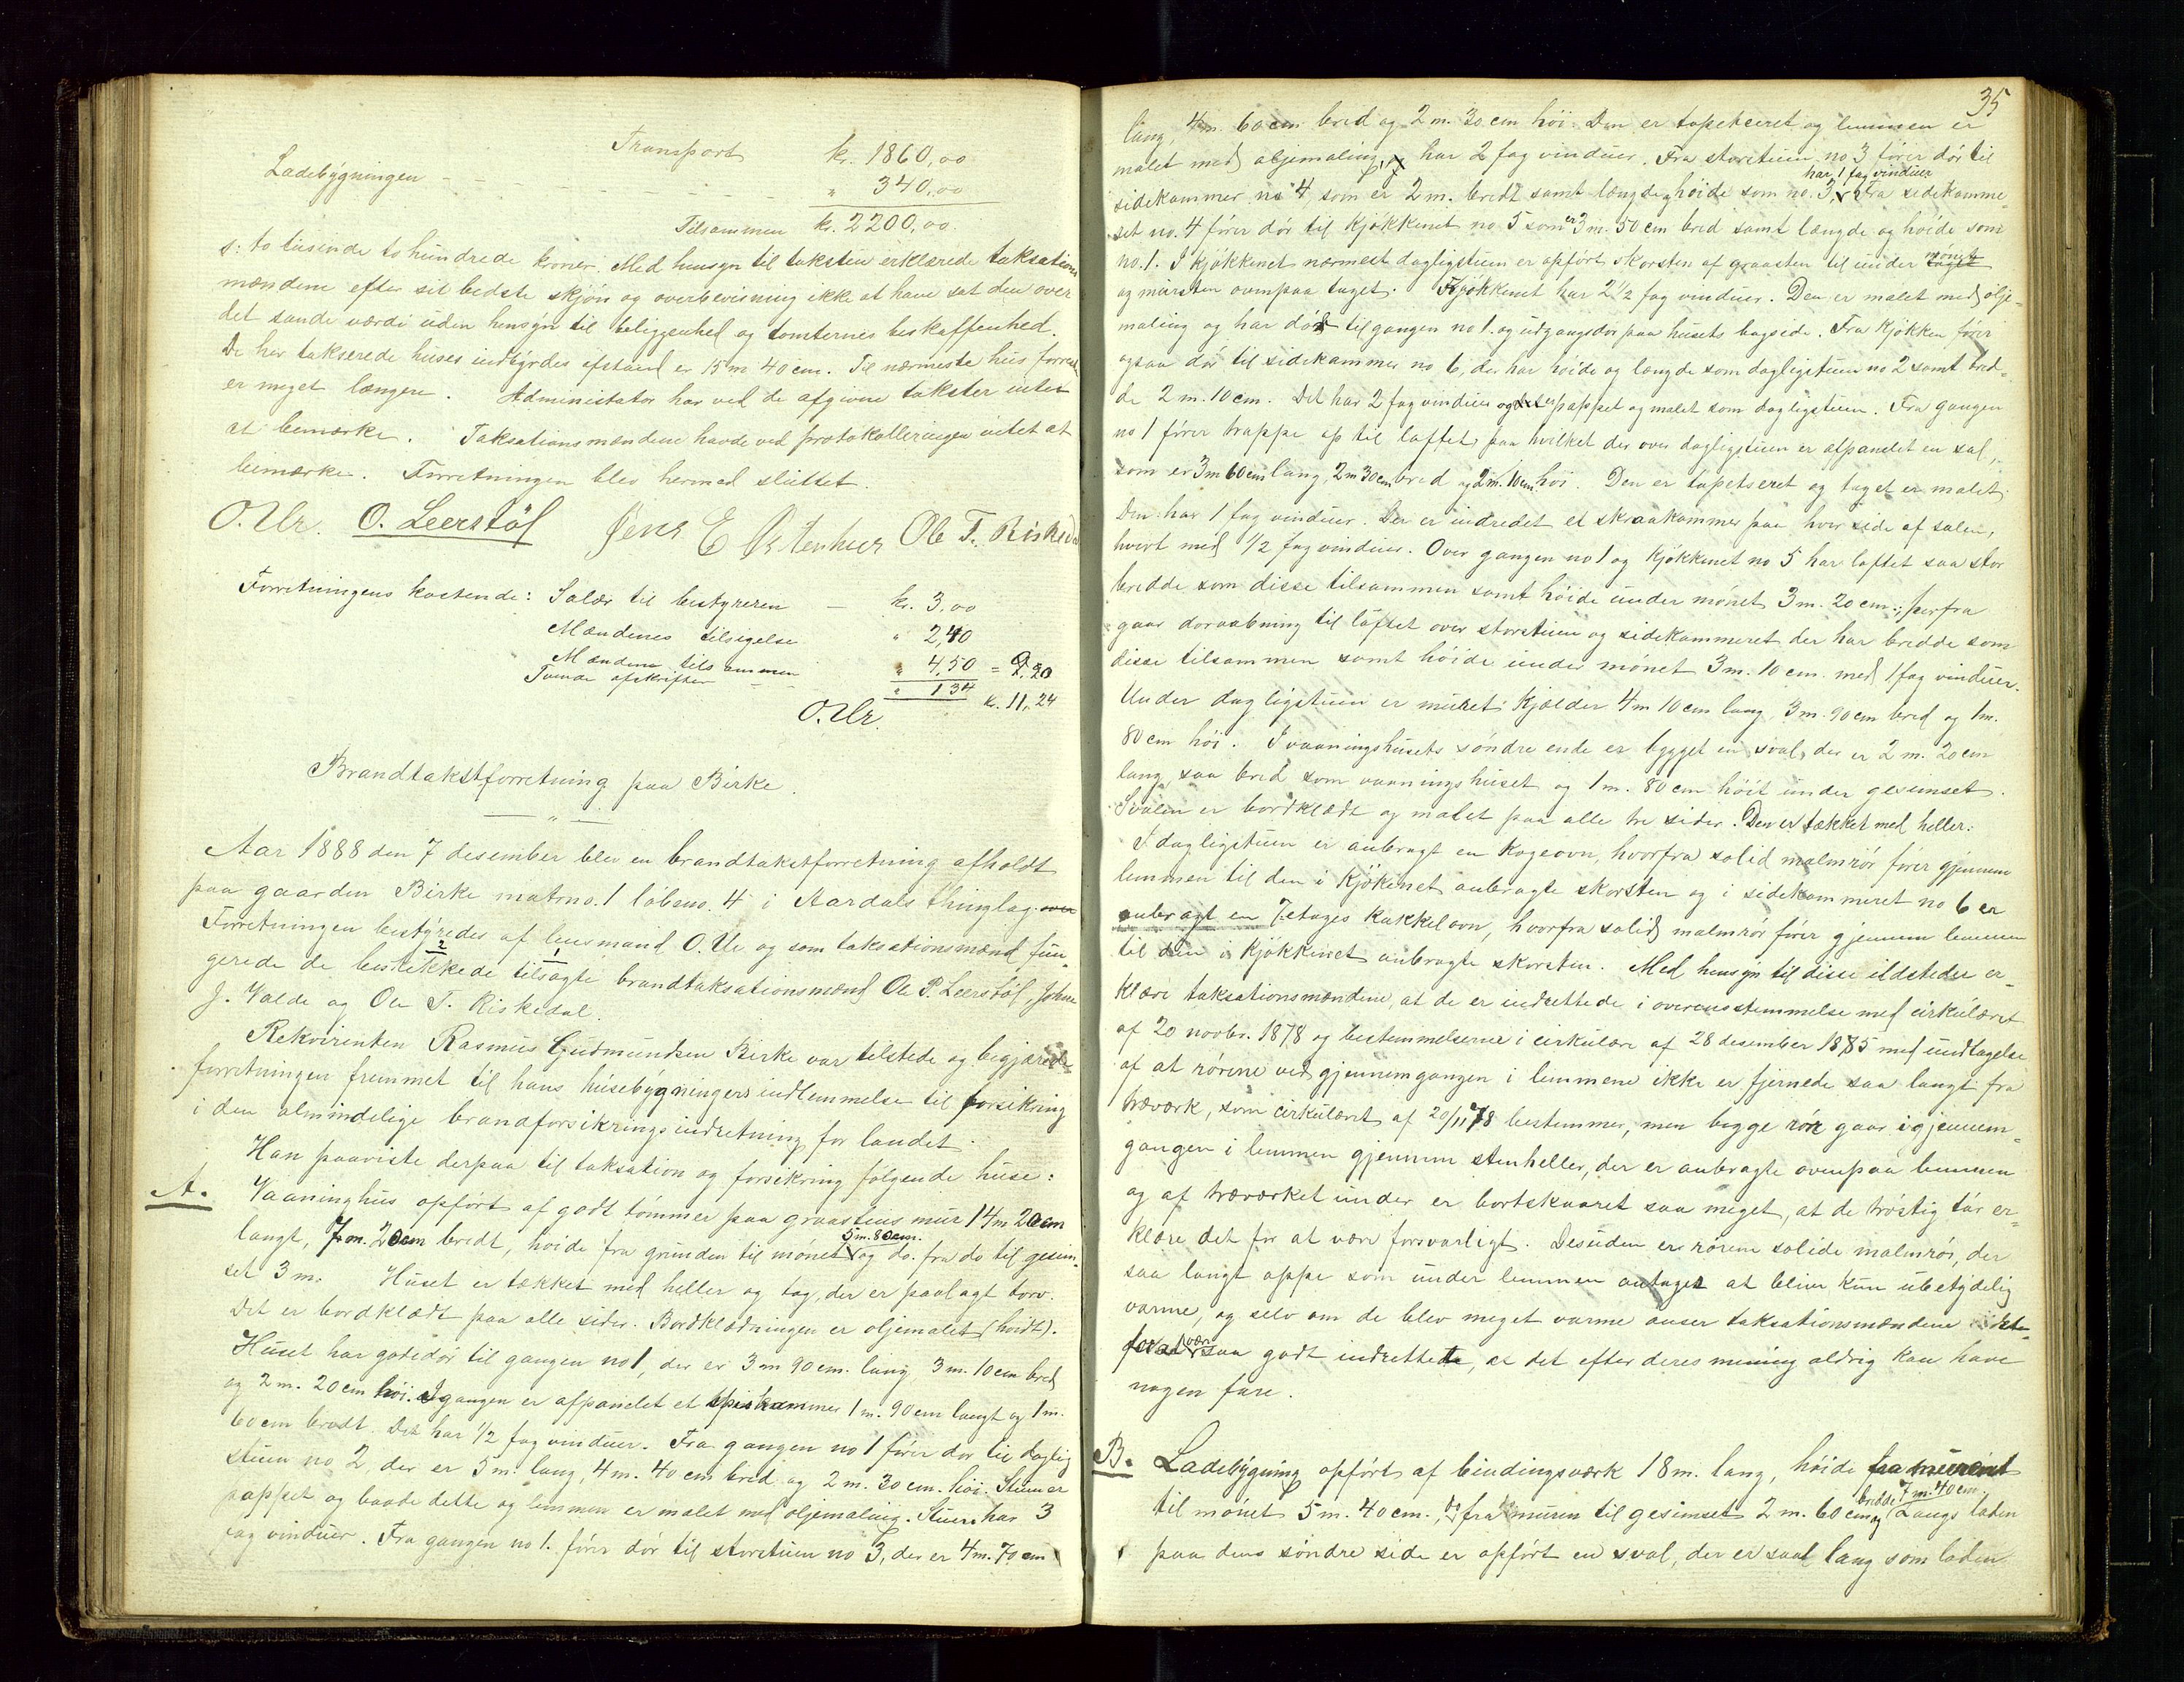 Transport kr. 1860,00
Ladebygningen - - - - - - - „ 340,00
Tilsammen kr. 2200,00.
s: to tusende to hundrede kroner. Med hensyn til taksten erklærede taksations
mændene efter sit bedste skjøn og overbevisning ikke at have sat den over
det sande værdi uden hensyn til beliggenhed og tomternes beskaffenhed.
De her takserede huses indbyrdes afstand er 15 m 40 cm. Til nærmeste hus forresten
er meget længere. Administrator har ved de afgivne takster intet
at bemærke. Taksationsmændene havde ved protokolleringen intet at
bemærke. Forretningen blev hermed sluttet.
O. Ur. O. Leerstøl Jens E Østenhus Ole T. Riskedal
Forretningens kostende: Salær til bestyreren - kr. 3,00
Mændenes tilsigelse „ 2,40
Mændene tilsammen „ 4,50 = 9,90
Tvende afskrifter - - „ 1 34
kr. 11,24
O. Ur.
Brandtakstforretning paa Birke.
Aar 1888 den 7 desember blev en brandtakstforretning afholdt
paa gaarden Birke matrno. 1 løbeno. 4 i Aardals thinglag
Forretningen bestyredes af lensmand O. Ur og som taksationsmænd fun-
gerede de beskikkede tilsagte brandtaksationsmænd Ole P. Leerstøl, Johan
J. Valde og Ole T. Riskedal.
Rekvirenten Rasmus Gudmundsen Birke var tilstede og begjærede
forretningen fremmet til hans husebygningers indlemmelse til forsikring
i den almindelige brandforsikringsindretning for landet.
Han paaviste derpaa til taksation og forsikring følgende huse:
A. Vaaninghus opført af godt tømmer paa graastens mur 14 m 20 cm
langt, 7 m. 20 cm bredt, høide fra grunden til mønet 5 m. 80 cm. og do. fra do til gesim-
set 3 m. Huset er tækket med heller og tag, der er paalagt torv.
Det er bordklædt paa alle sider. Bordklædningen er oljemalet (hvidt).
Huset har gatedør til gangen no 1, der er 3 m 90 cm. lang, 3 m. 10 cm bred
og 2 m. 20 cm høi. I gangen er afpanelet et spiskammer 1 m. 90 cm langt og 1 m.
60 cm bredt. Det har 1/2 fag vinduer. Fra gangen no 1 fører dør til daglig
stuen no 2, der er 5 m. lang, 4 m. 40 cm bred og 2 m. 30 cm. høi. Stuen er
pappet og baade dette og lemmen er malet med oljemaling. Stuen har 3
fag vinduer. Fra gangen no 1. fører dør til storstuen no 3, der er 4 m. 70 cm
35
lang, 4 m. 60 cm bred og 2 m. 30 cm høi. Den er tapetseret og lemmen er
malet med oljemaling, har 2 fag vinduer. Fra storstuen no 3 fører dør til
sidekammer no 4, som er 2 m. bredt samt længde og høide som no. 3, har 1 fag vinduer. Fra sidekamme-
ret no. 4 fører dør til kjøkkenet no 5 som er 3 m. 50 cm bred samt længde og høide som
no. 1. I kjøkkenet nærmest dagligstuen er opført skorsten af graasten til under mønet
og mursten ovenpaa taget. Kjøkkenet har 2 1/2 fag vinduer. Den er malet med olje-
maling og har dør til gangen no 1. og udgangsdør paa husets bagside. Fra kjøkken fører
ogsaa dør til sidekammer no 6, der har høide og længde som dagligstuen no 2 samt bred-
de 2 m. 10 cm. Det har 2 fag vinduer og er pappet og malet som dagligstuen. Fra gangen
no 1 fører trappe op til loftet, paa hvilket der over dagligstuen er afpanelet en sal,
som er 3 m 60 cm lang, 2 m 30 cm bred og 2 m. 10 cm høi. Den er tapetseret og taget er malet.
Den har 1 fag vinduer. Der er indredet et skraakammer paa hver side af salen,
hvert med 1/2 fag vinduer. Over gangen no 1 og kjøkkenet no 5 har loftet saa stor
bredde som disse tilsammen samt høide under mønet 3 m. 20 cm; herfra
gaar døraabning til loftet over storstuen og sidekammeret der har bredde som
disse tilsammen samt høide under mønet 3 m. 10 cm. med 1 fag vinduer.
Under dagligstuen er muret kjælder 4 m 10 cm lang 3 m. 90 cm bred og 1 m.
80 cm høi. I vaaningshusets søndre ende er bygget en sval, der er 2 m. 20 cm
lang, saa bred som vaaningshuset og 1 m. 80 cm høit under gesimset.
Svalen er bordklædt og malet paa alle tre sider. Den er tækket med heller.
I dagligstuen er anbragt en kogeovn, hvorfra solid malmrør fører gjennem
lemmen til den i kjøkkenet anbragte skorsten og i sidekammeret no 6 er
anbragt en 7 etages kakkelovn, hvorfra solid malmrør fører gjennem lemmen
til den i kjøkkenet anbragte skorsten. Med hensyn til disse ildsteder er-
klære taksationsmændene, at de er indrettede i overensstemmelse med cirkulæret
af 20 novbr. 1878 og bestemmelserne i cirkulære af 28 desember 1885 med undtagelse
af at rørene ved gjennemgangen i lemmene ikke er fjernede saa langt fra
træværk, som cirkulæret af 20/11 78 bestemmer, men begge rør gaar i gjennem-
gangen i lemmen gjennem stenheller, der er anbragte ovenpaa lemmen
og af træværket under er bortskaaret saa meget, at de trøstig tør er-
klære det for at være forsvarligt. Desuden er rørene solide malmrør, der
saa langt oppe som under lemmen antages at blive kun ubetydelig
varme, og selv om de blev meget varme anser taksationsmændene
for at være saa godt indrettede, at det efter deres mening aldrig kan have
nogen fare.
B. Ladebygning opført af bindingsværk 18 m. lang, høide
til mønet 5 m. 40 cm., do fra muren til gesimset 2 m. 60 cm og bredde 7 m. 40 cm. Langs laden
paa dens søndre side er opført en sval, der er saa lang som laden